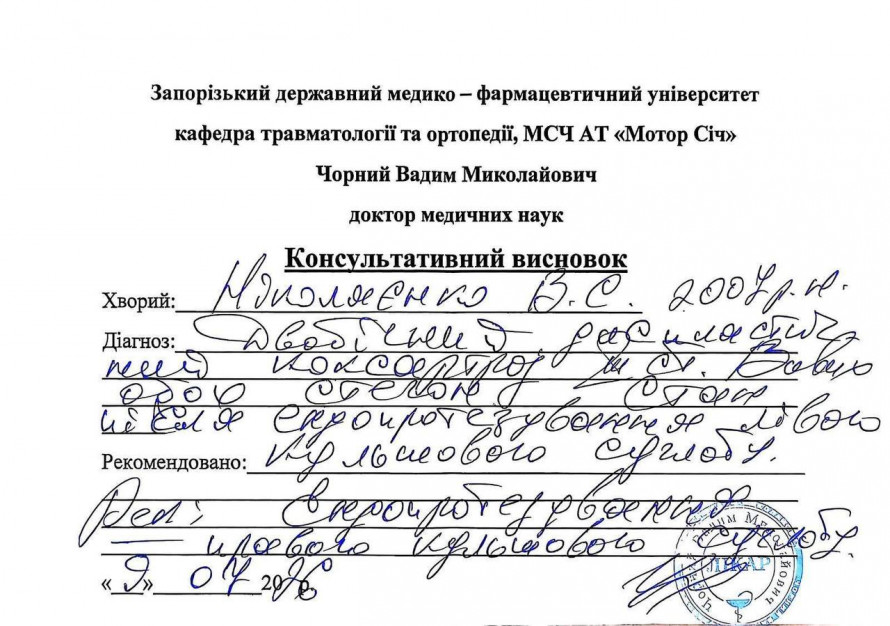 Запорізький державний медико – фармацевтичний університет
кафедра травматології та ортопедії, МСЧ АТ «Мотор Січ»
Чорний Вадим Миколайович
доктор медичних наук
Консультативний висновок
Хворий: Ніколаєнко В.С. 2007 р.н.
Діагноз: Двобічний диспластич
ний коксартроз III ст. Вивих
обох стегон. Стан
після ендопротезування лівого
Рекомендовано: кульшового суглобу.
Рек: Ендопротезування
правого кульшового суглобу.
«9» 07 20 р.
ЛІКАР
Чорний Вадим Миколайович